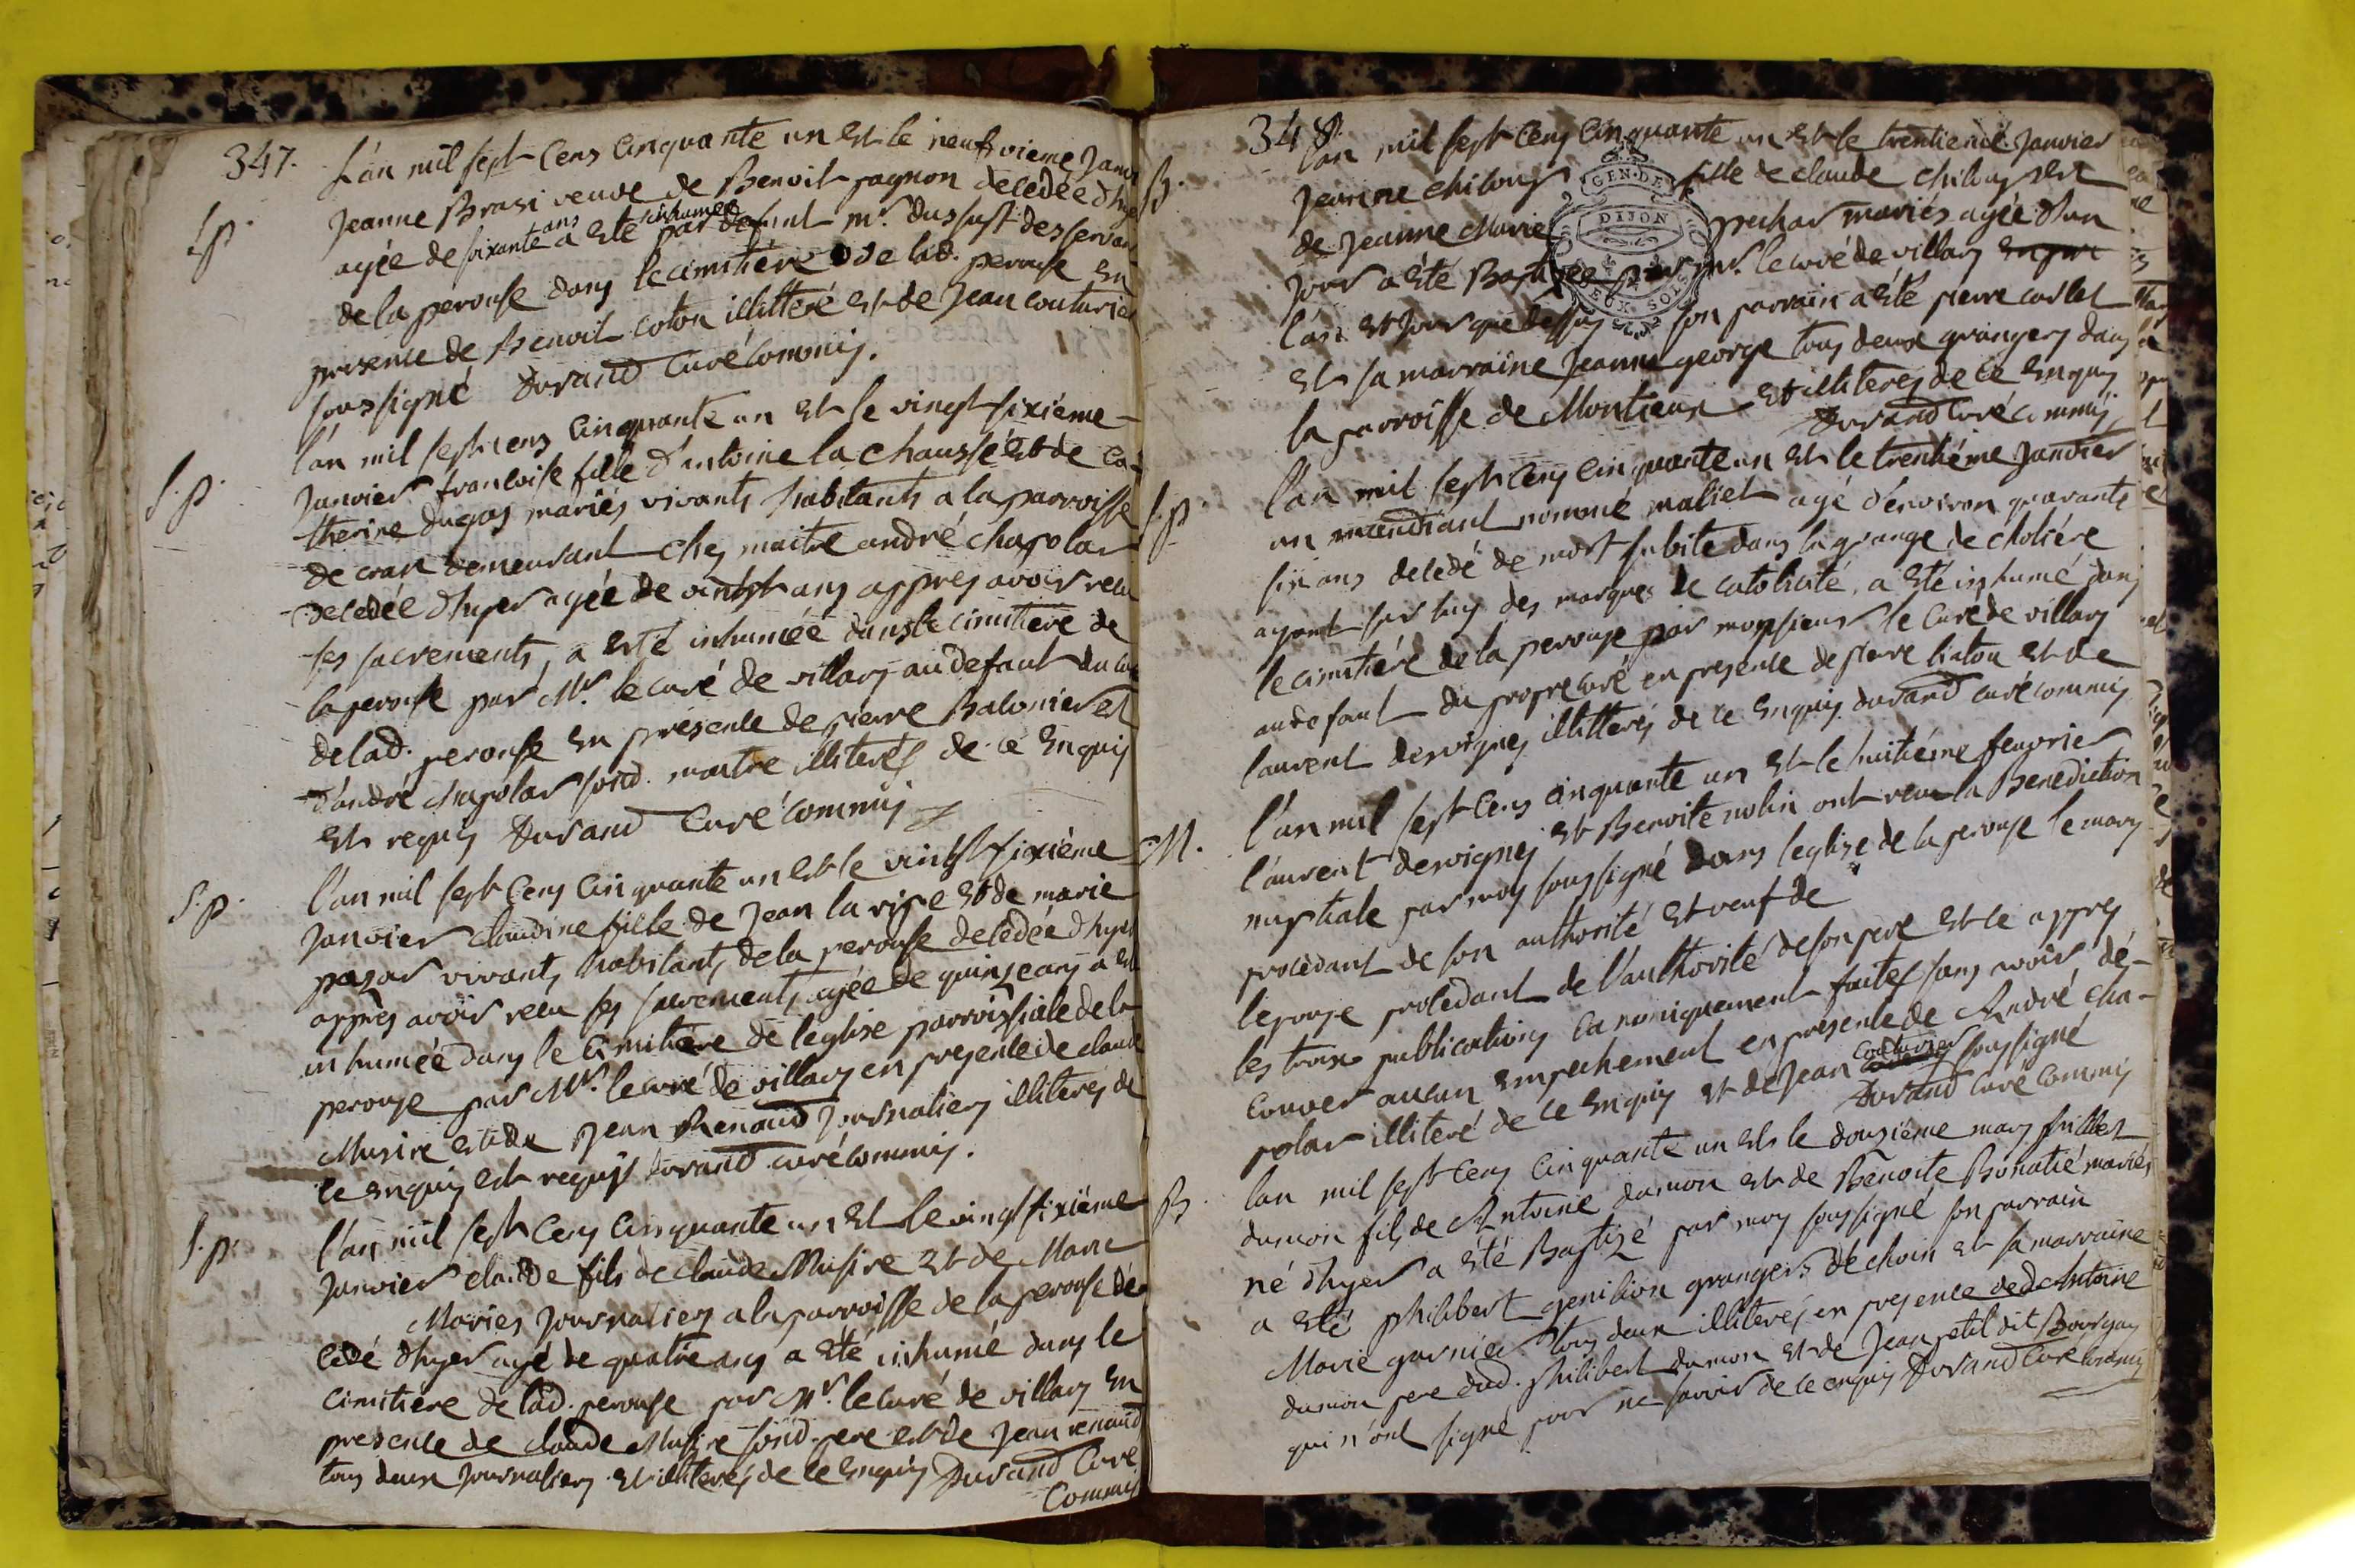 347.
L'an mil sept cens cinquante un et le neufvieme Janv
S.p.
Jeanne Brasi veuve de Benoit pagnon decedée d'hye
agée de soixante ans a été inhumée par defaut mr. dussust desservan
de la perouse dans le cimitiére de lad. perouse en
presence de Benoit coton illitteré et de Jean couturier
soussigné Durand Curé Commis.
l'an mil sept cens cinquante un et le vingt sixiéme
S.p.
Janvier francoise fille d'antoine la chaussé et de ca-
therine dugas mariés vivants habitants a la parroisse
de cran demeurant chez maitre andré chapolar
decedée d'hyer agée de vinght ans appres avoir receu
ses sacrements, a été inhumée dans le cimitiere de
la perouse par Mr. le curé de villars au defaut du cu
de lad. perouse en presence de pierre Balonier et
d'andré chapolar soud. maitre illiterés de ce enquis
et requis Durand Curé Commis
S.p.
l'an mil sept cens cinquante un et le vinght sixiéme
Janvier claudine fille de Jean la ripe et de marie
pazar vivants habitants de la perouse decedée d'hyer
apprés avoir receu ses sacrements agée de quinze ans a été
inhumée dans le cimitiére de leglise parroissiale de la
perouse par Mr. le curé de villars en presence de claude
Musire et de Jean Renaud Journaliers illiterés de
ce enquis et requis Durand curé commis.
S.p.
l'an mil sept cens cinquante un et le vingt sixiéme
Janvier claude fils de claude Musire et de Marie
Mariés Journaliers a la parroisse de la perouse de-
cedé d'hyer agé de quatre ans a été inhumé dans le
cimitiére de lad. perouse par Mr. le curé de villars en
presence de claude Musire soud. pere et de Jean renaud
tous deux Journaliers et illiterés de ce enquis Durand Curé
Commis
348.
B.
l'an mil sept cens cinquante un et le trentieme Janvier
Jeanne chilous fille de claude chilous et
de Jeanne Marie puchar mariés agée d'un
jour a été Baptisée par mr. le curé de villars
l'an et jour que dessus son parrain a été pierre carlet
et sa marraine Jeanne george tous deux grangers dans
la parroisse de Montieux et illiterés de ce enquis
Durand Curé commis
S.p.
l'an mil sept cens cinquante un et le trentiéme Janvier
un mendiant nommé maliet agé d'environ quarante
six ans decedé de mort subite dans la grange de choliére
ayant sur luy des marques de catolicité, a été inhumé dans
le cimitiére de la perouse par monsieur le Curé de villars
au defaut du propre curé en presence de pierre linton et de
laurent desvignes illitterés de ce enquis. Durand curé commis
M.
l'an mil sept cens cinquante un et le huitiéme feuvrier
l'aurent desvignes et Benoite nolin ont receu la Benediction
nuptiale par moy soussigné dans leglise de la perouse le mary
procédant de son authorité et veuf de
l'epouse procedant de l'authorité de son pere et ce appres
les trois publications canoniquement faites sans avoir dé-
couver aucun empechement en presence de André cha-
polar illiteré de ce enquis et de Jean couturier soussigné
Durand curé commis
B.
lan mil sept cens cinquante un et le douzième mars philibert
dumon fils de Antoine dumon et de Benoite Bonatié mariés
né d'hyer a été Baptizé par moy soussigné son parrain
a été philibert genition grangers de choin et sa marraine
Marie garnier tous deux illiterés en presence de Antoine
dumon pere dud. philibert dumon et de Jean petit dit Bourgay
qui n'ont signé pour ne savoir de ce enquis Durand Curé Commis
GEN. DE
DIJON
DEUX SOLS